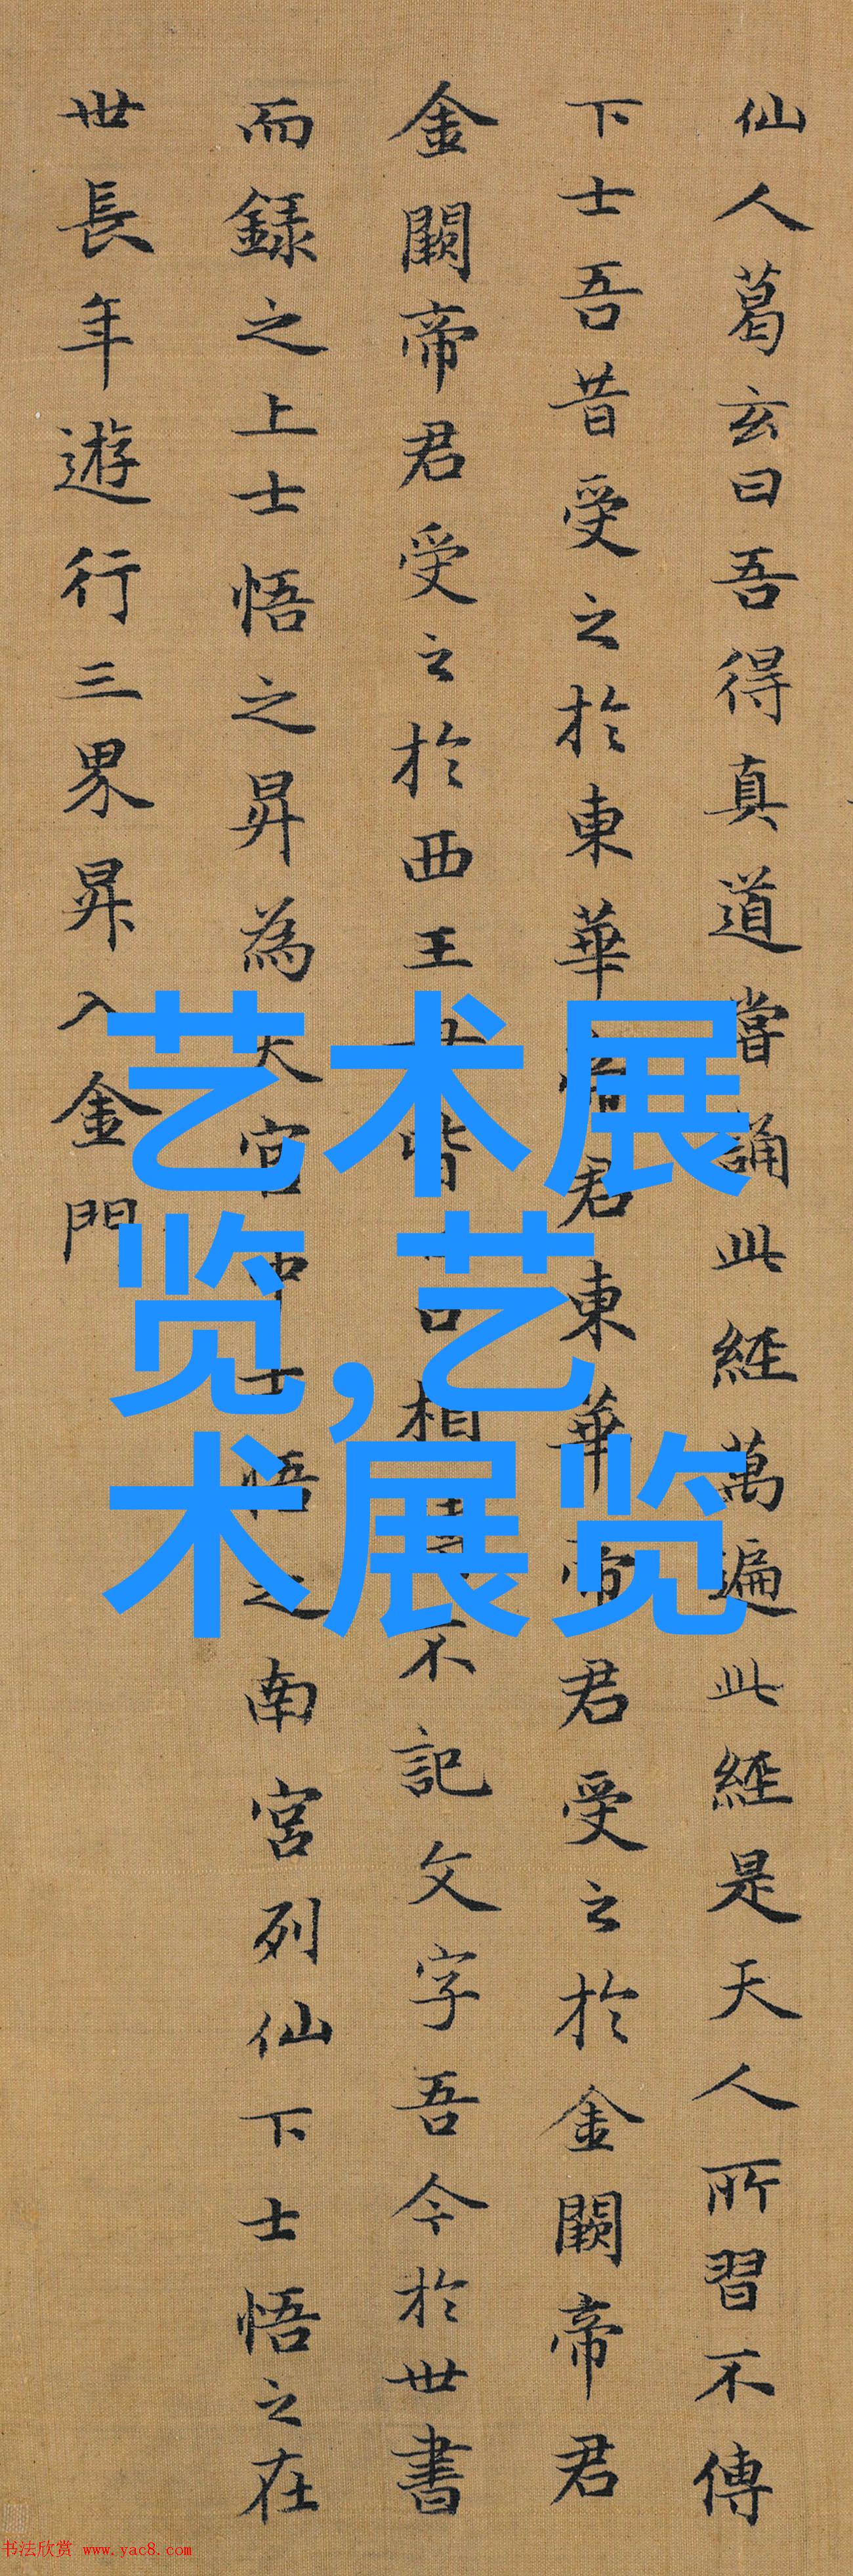 仙人葛玄曰吾得真道嘗誦此經萬遍此經是天人所習不傳
下士吾昔受之於東華帝君東華帝君受之於金闕帝君
金闕帝君受之於西王母皆口口相不記文字吾今於世書
而録之上士悟之昇為天官中士悟之南宮列仙下士悟之在
世長年遊行三界昇入金門
艺术展
览,艺
术展览
书法欣赏 www.yac8.com